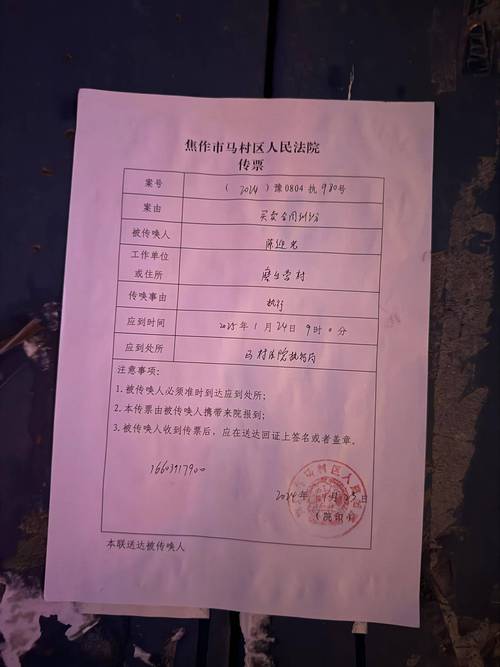 焦作市马村区人民法院
传票
案号 （2024）豫0804执980号
案由 买卖合同纠纷
被传唤人 陈迎光
工作单位或住所 磨台营村
传唤事由 执行
应到时间 2025年1月24日9时0分
应到处所 马村法院执行局
注意事项：
1.被传唤人必须准时到达应到处所；
2.本传票由被传唤人携带来院报到；
3.被传唤人收到传票后，应在送达回证上签名或者盖章。
16603917900
（院印）
本联送达被传唤人